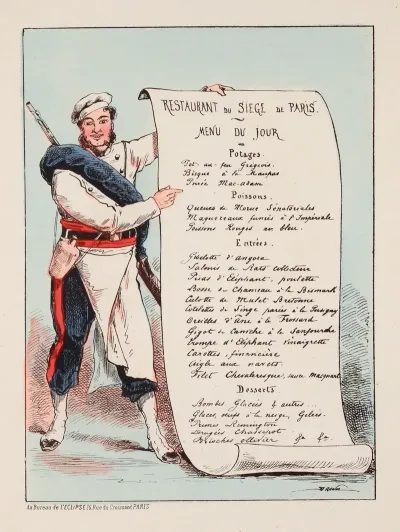 RESTAURANT DU SIEGE DE PARIS.
MENU DU JOUR
Potages.
Pot-au-feu Grégeois.
Bisque à la
Purée Mac-adam
Poissons.
Queues de Morue Sénatoriales
Maquereaux fumés à l'Impériale
Poissons Rouges au bleu.
Entrées.
Gibelotte d'angora
Salmis de Rats
Pieds d'Eléphant, poulette
Bosse de Chameau à la Bismark
Culotte de Mulet Bretonne
Côtelettes de Singe panées à la
Oreilles d'Ane à la Frossard
Gigot de Caniche à la
Trompe d'Eléphant Vinaigrette
Carottes, financière
Aigle aux navets
Filet Chevaleresque, sauce
Desserts
Bombes Glacées & autres...
Glaces, œufs à la neige, Gelées.
Prunes Remington
Dragées Chassepot
Brioches ollivier &a &a
Au Bureau de l'ECLIPSE 16, Rue du Croissant, PARIS